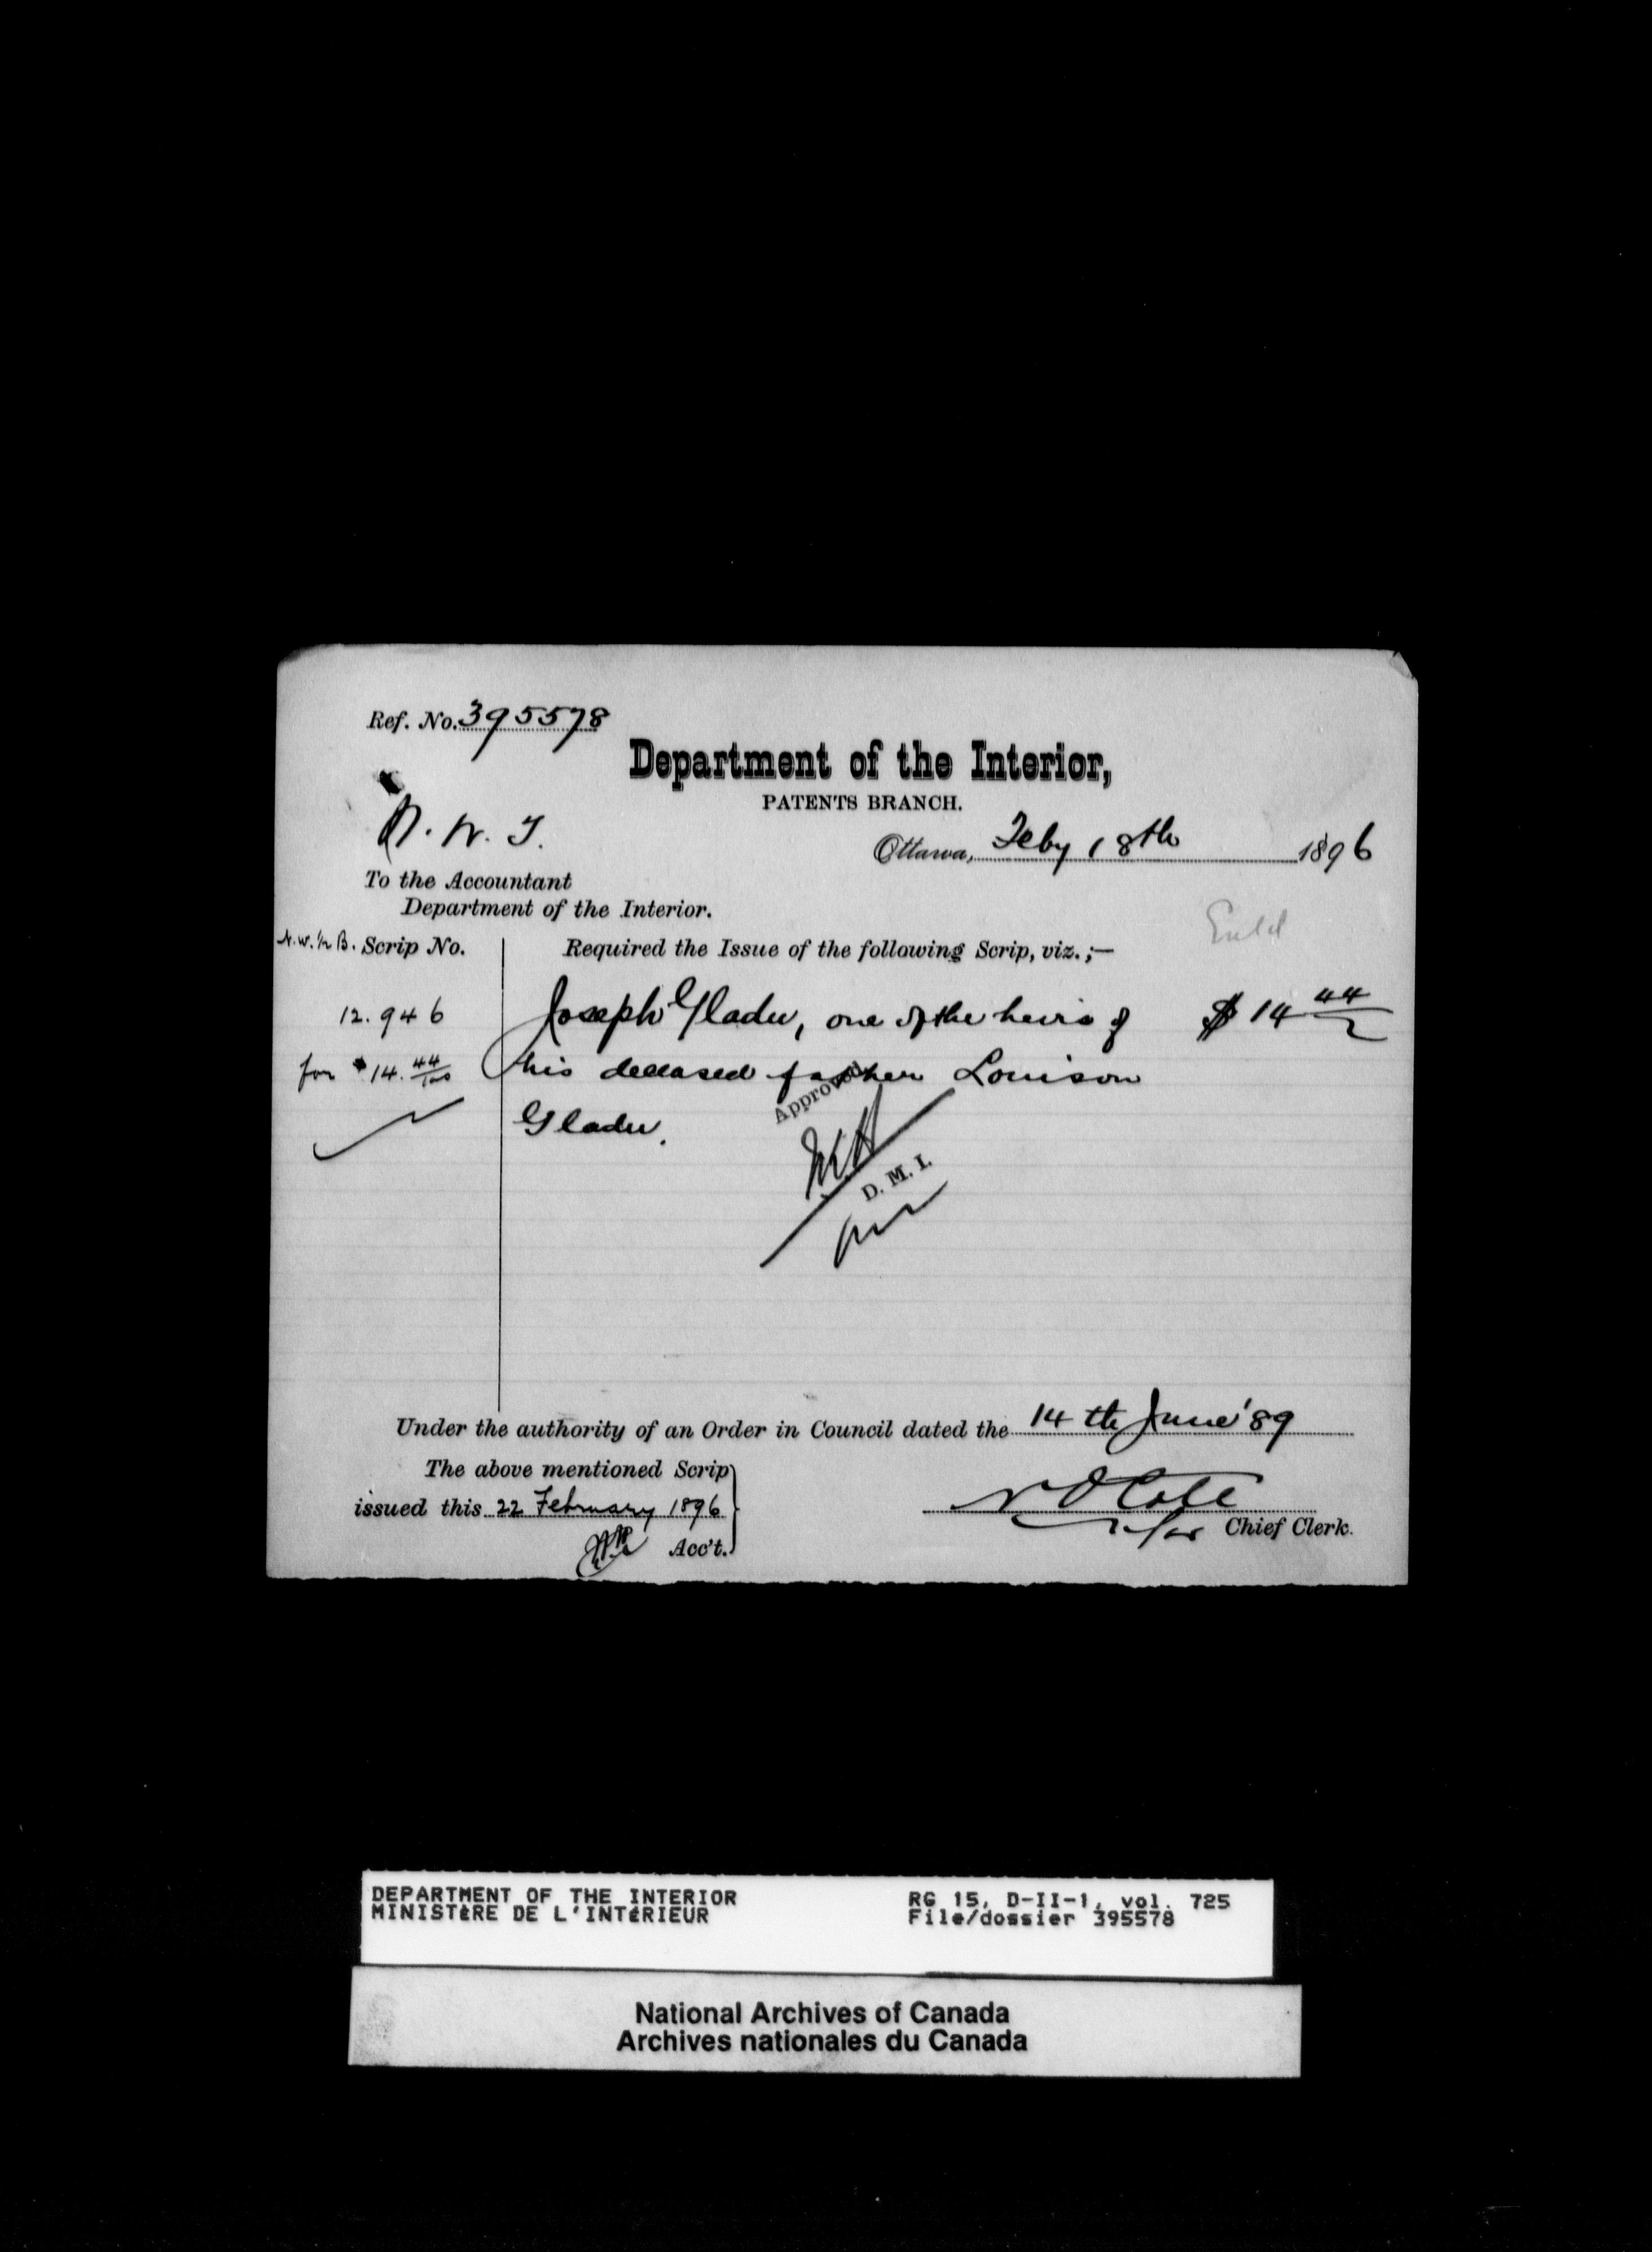 Ref. No. 395578
Department of the Interior,
PATENTS BRANCH.
N. W. T.
Ottawa, Feby 18th 1896
To the Accountant
Department of the Interior.
N.W. ½ B. Scrip No.
Required the Issue of the following Scrip, viz.;—
12.946
for $14.44/100
Joseph Gladu, one of the heirs of $14 44
his deceased father Louison
Gladu.
Approved
D. M. I.
Under the authority of an Order in Council dated the 14th June '89
The above mentioned Scrip
issued this 22 February 1896
Acc't.
N O Coté
for Chief Clerk.
DEPARTMENT OF THE INTERIOR
MINISTÈRE DE L'INTÉRIEUR
RG 15, D-II-1, vol. 725
File/dossier 395578
National Archives of Canada
Archives nationales du Canada